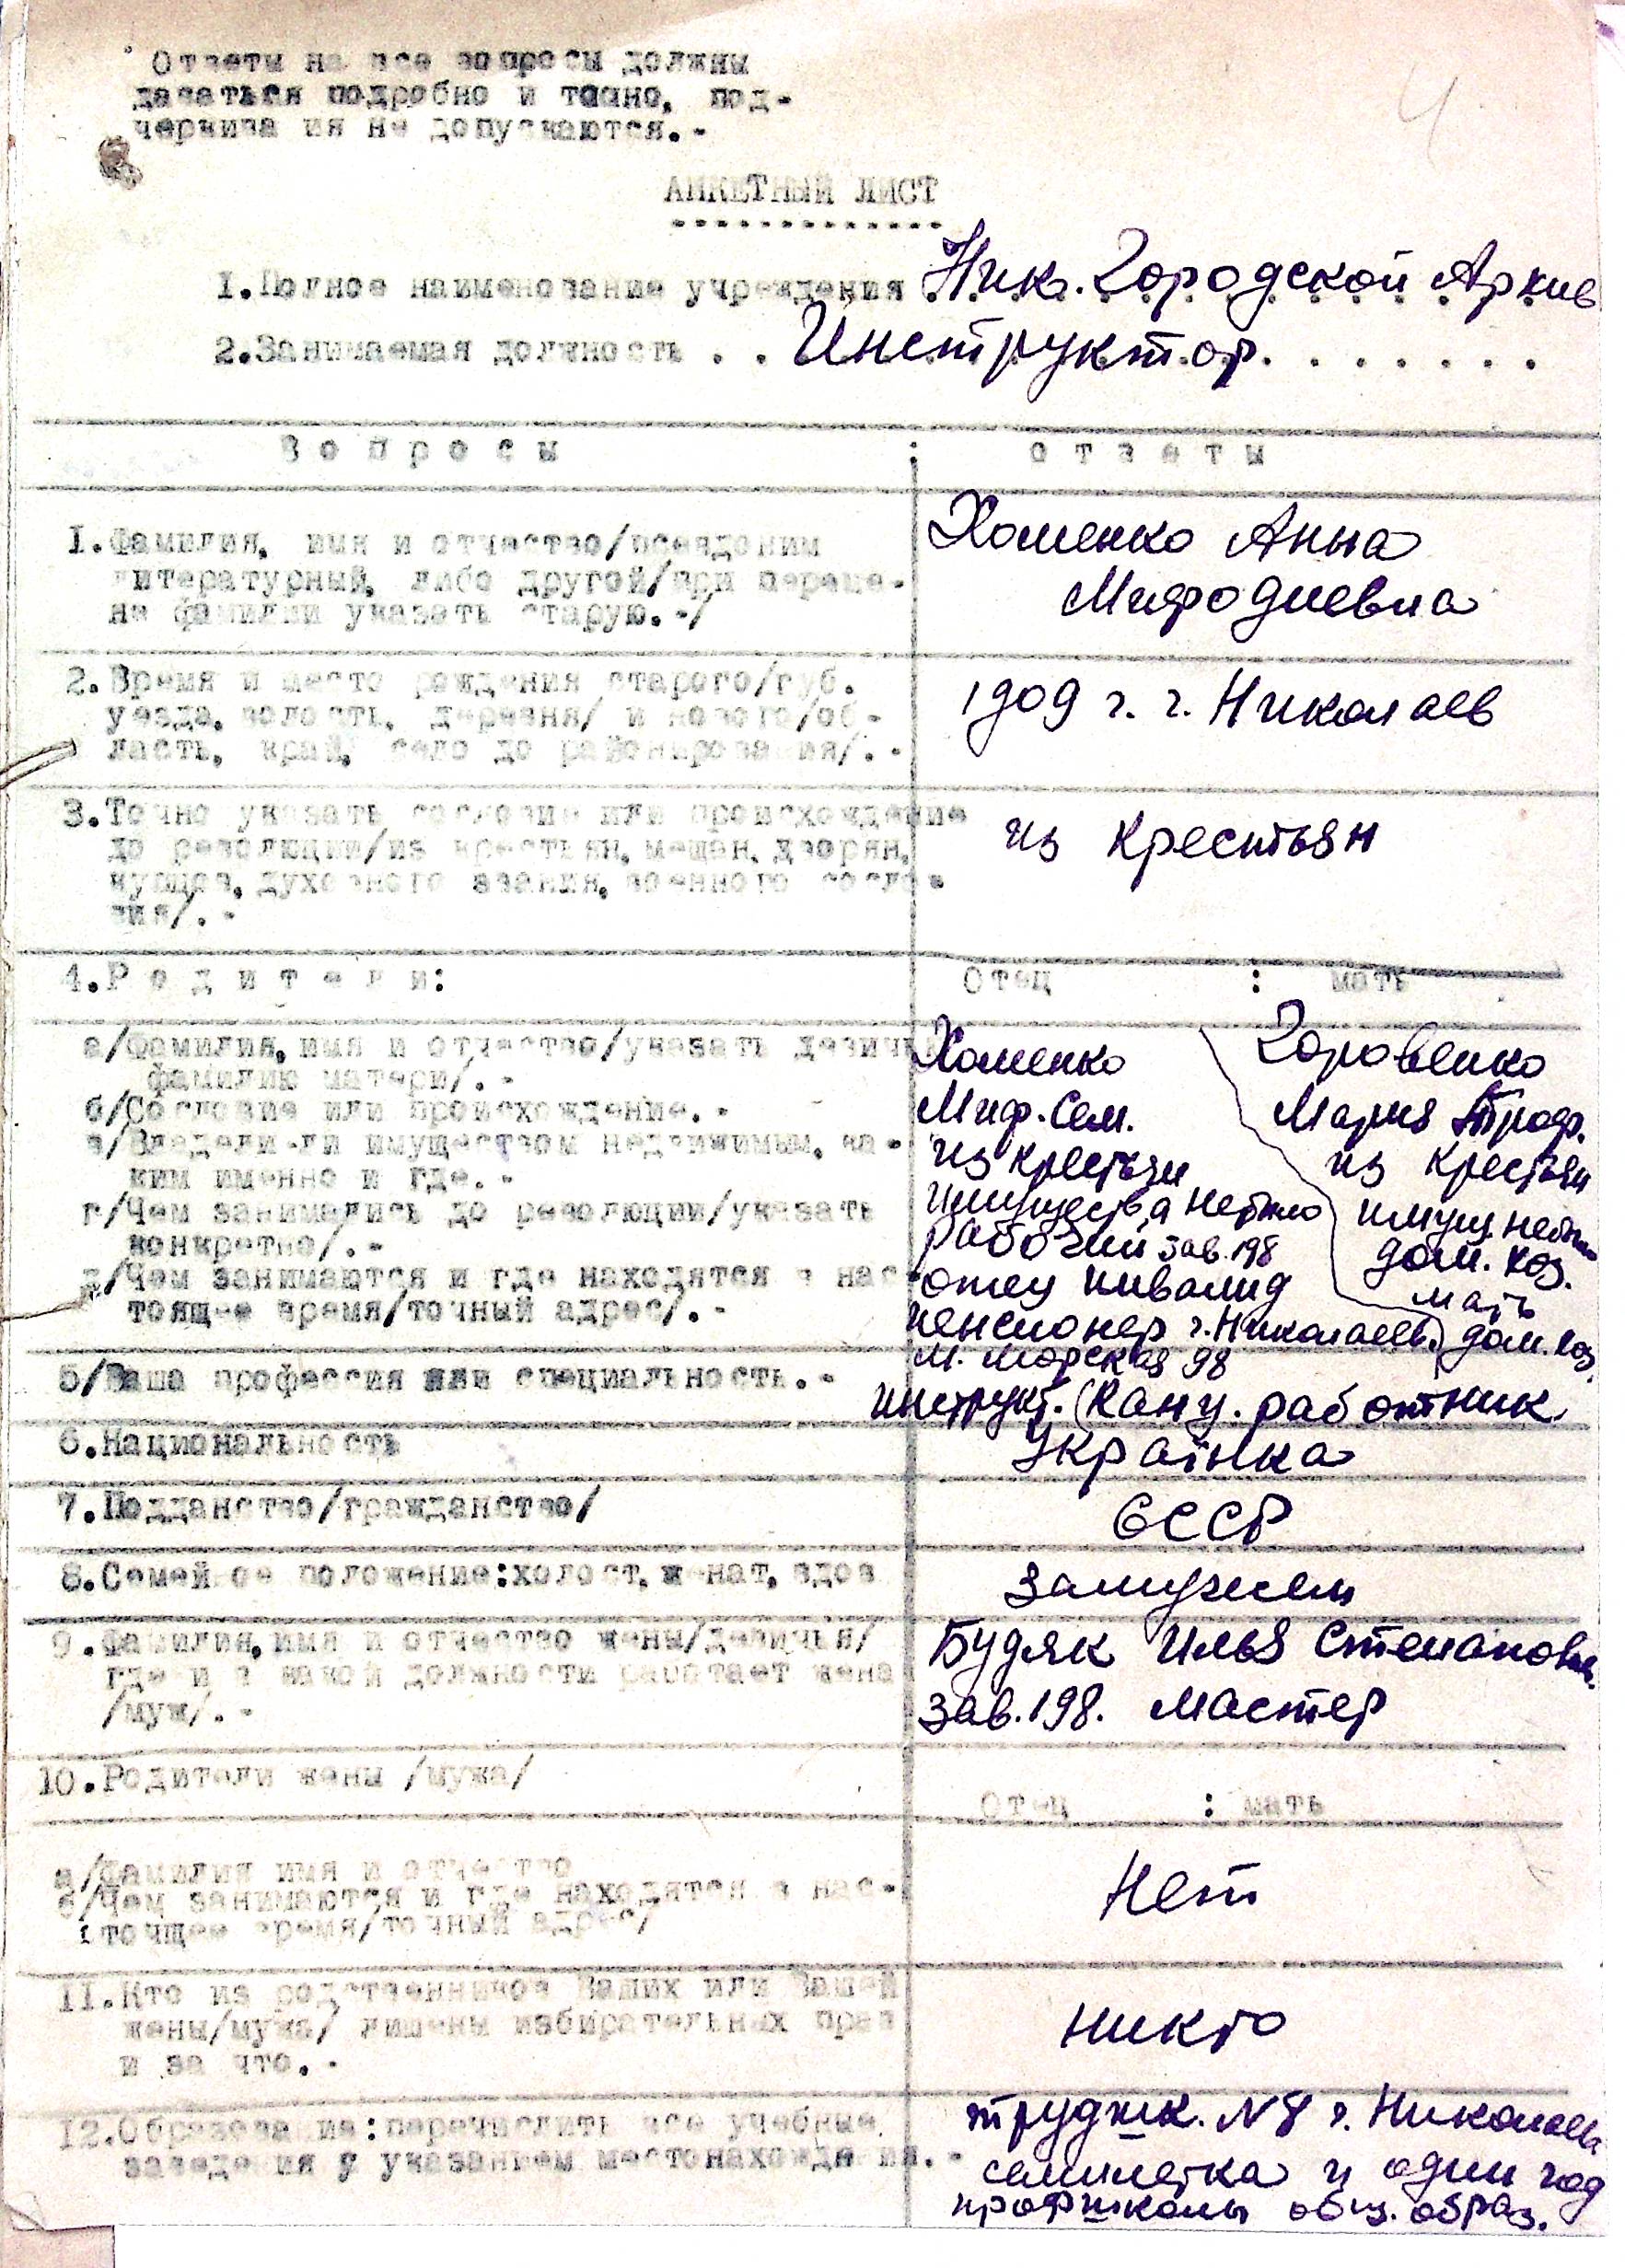 Ответы на все вопросы должны
даваться подробно и точно, под-
черкива ия не допускаются.-
4
АНКЕТНЫЙ ЛИСТ
1.Полное наименование учреждения Ник. Городской Архив
2.Занимаемая должность . . Инструктор. . . . . . .
В о п р о с ы : о т в е т ы
1.Фамилия, имя и отчество/псевдоним
литературный, либо другой/при переме-
не фамилии указать старую.-/
Хоменко Анна
Мифодиевна
2.Время и место рождения старого/губ.
уезда, волость, деревня/ и нового/об-
ласть, край, село до районирования/.-
1909 г. г. Николаев
3.Точно указать сословие или происхождение
до революции/из крестьян, мещан, дворян,
купцов, духовного звания, военного сосло-
вия/.-
из крестьян
4.Р о д и т е л и:
Отец : мать
а/Фамилия, имя и отчество/указать девичью
фамилию матери/.-
б/Сословие или происхождение.-
в/Владели-ли имуществом недвижимым, ка-
ким именно и где.-
г/Чем занимались до революции/указать
конкретно/.-
д/Чем занимаются и где находятся в нас-
тоящее время/точный адрес/.-
Хоменко
Миф. Сем.
из крестьян
имущества не было
рабочий зав. 198
отец инвалид
пенсионер г. Николаев
М. Морская 98
Горовенко
Мария Троф.
из крестьян
имущ. не было
дом. хоз.
мать
дом. хоз.
5/Ваша профессия или специальность.-
инструкт. (Канц. работник
6.Национальность
Українка
7.Подданство/гражданство/
СССР
8.Семейное положение:холост, женат, вдов
замужем
9.Фамилия, имя и отчество жены/девичья/
где и в какой должности работает жена
/муж/.-
Будяк Илья Степанов.
зав. 198. мастер
10.Родители жены /мужа/
Отец : мать
а/Фамилия имя и отчество
б/Чем занимаются и где находятся в нас-
точщее время/точный адрес/
Нет
11.Кто из родственников Ваших или Вашей
жены/мужа/ лишены избирательных прав
и за что.-
никто
12.Образова ие:перечислить все учебные
заведения с указанием местонахожде ия.-
трудшк. N8 г. Николаев
семилетка и один год
профшколы общ. образ.